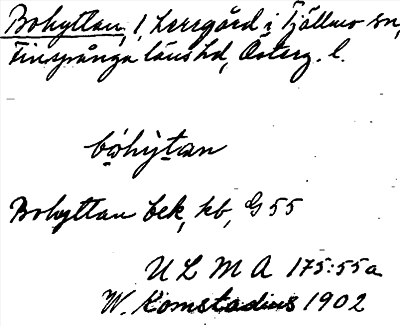 Bohyttan, 1, herrgård i Tjällmo sn,
Finspånga länshd, Österg. l.
bóhỳtan
Bohyttan bek, kb, G 55
ULMA 175:55a
W. Komstadius 1902